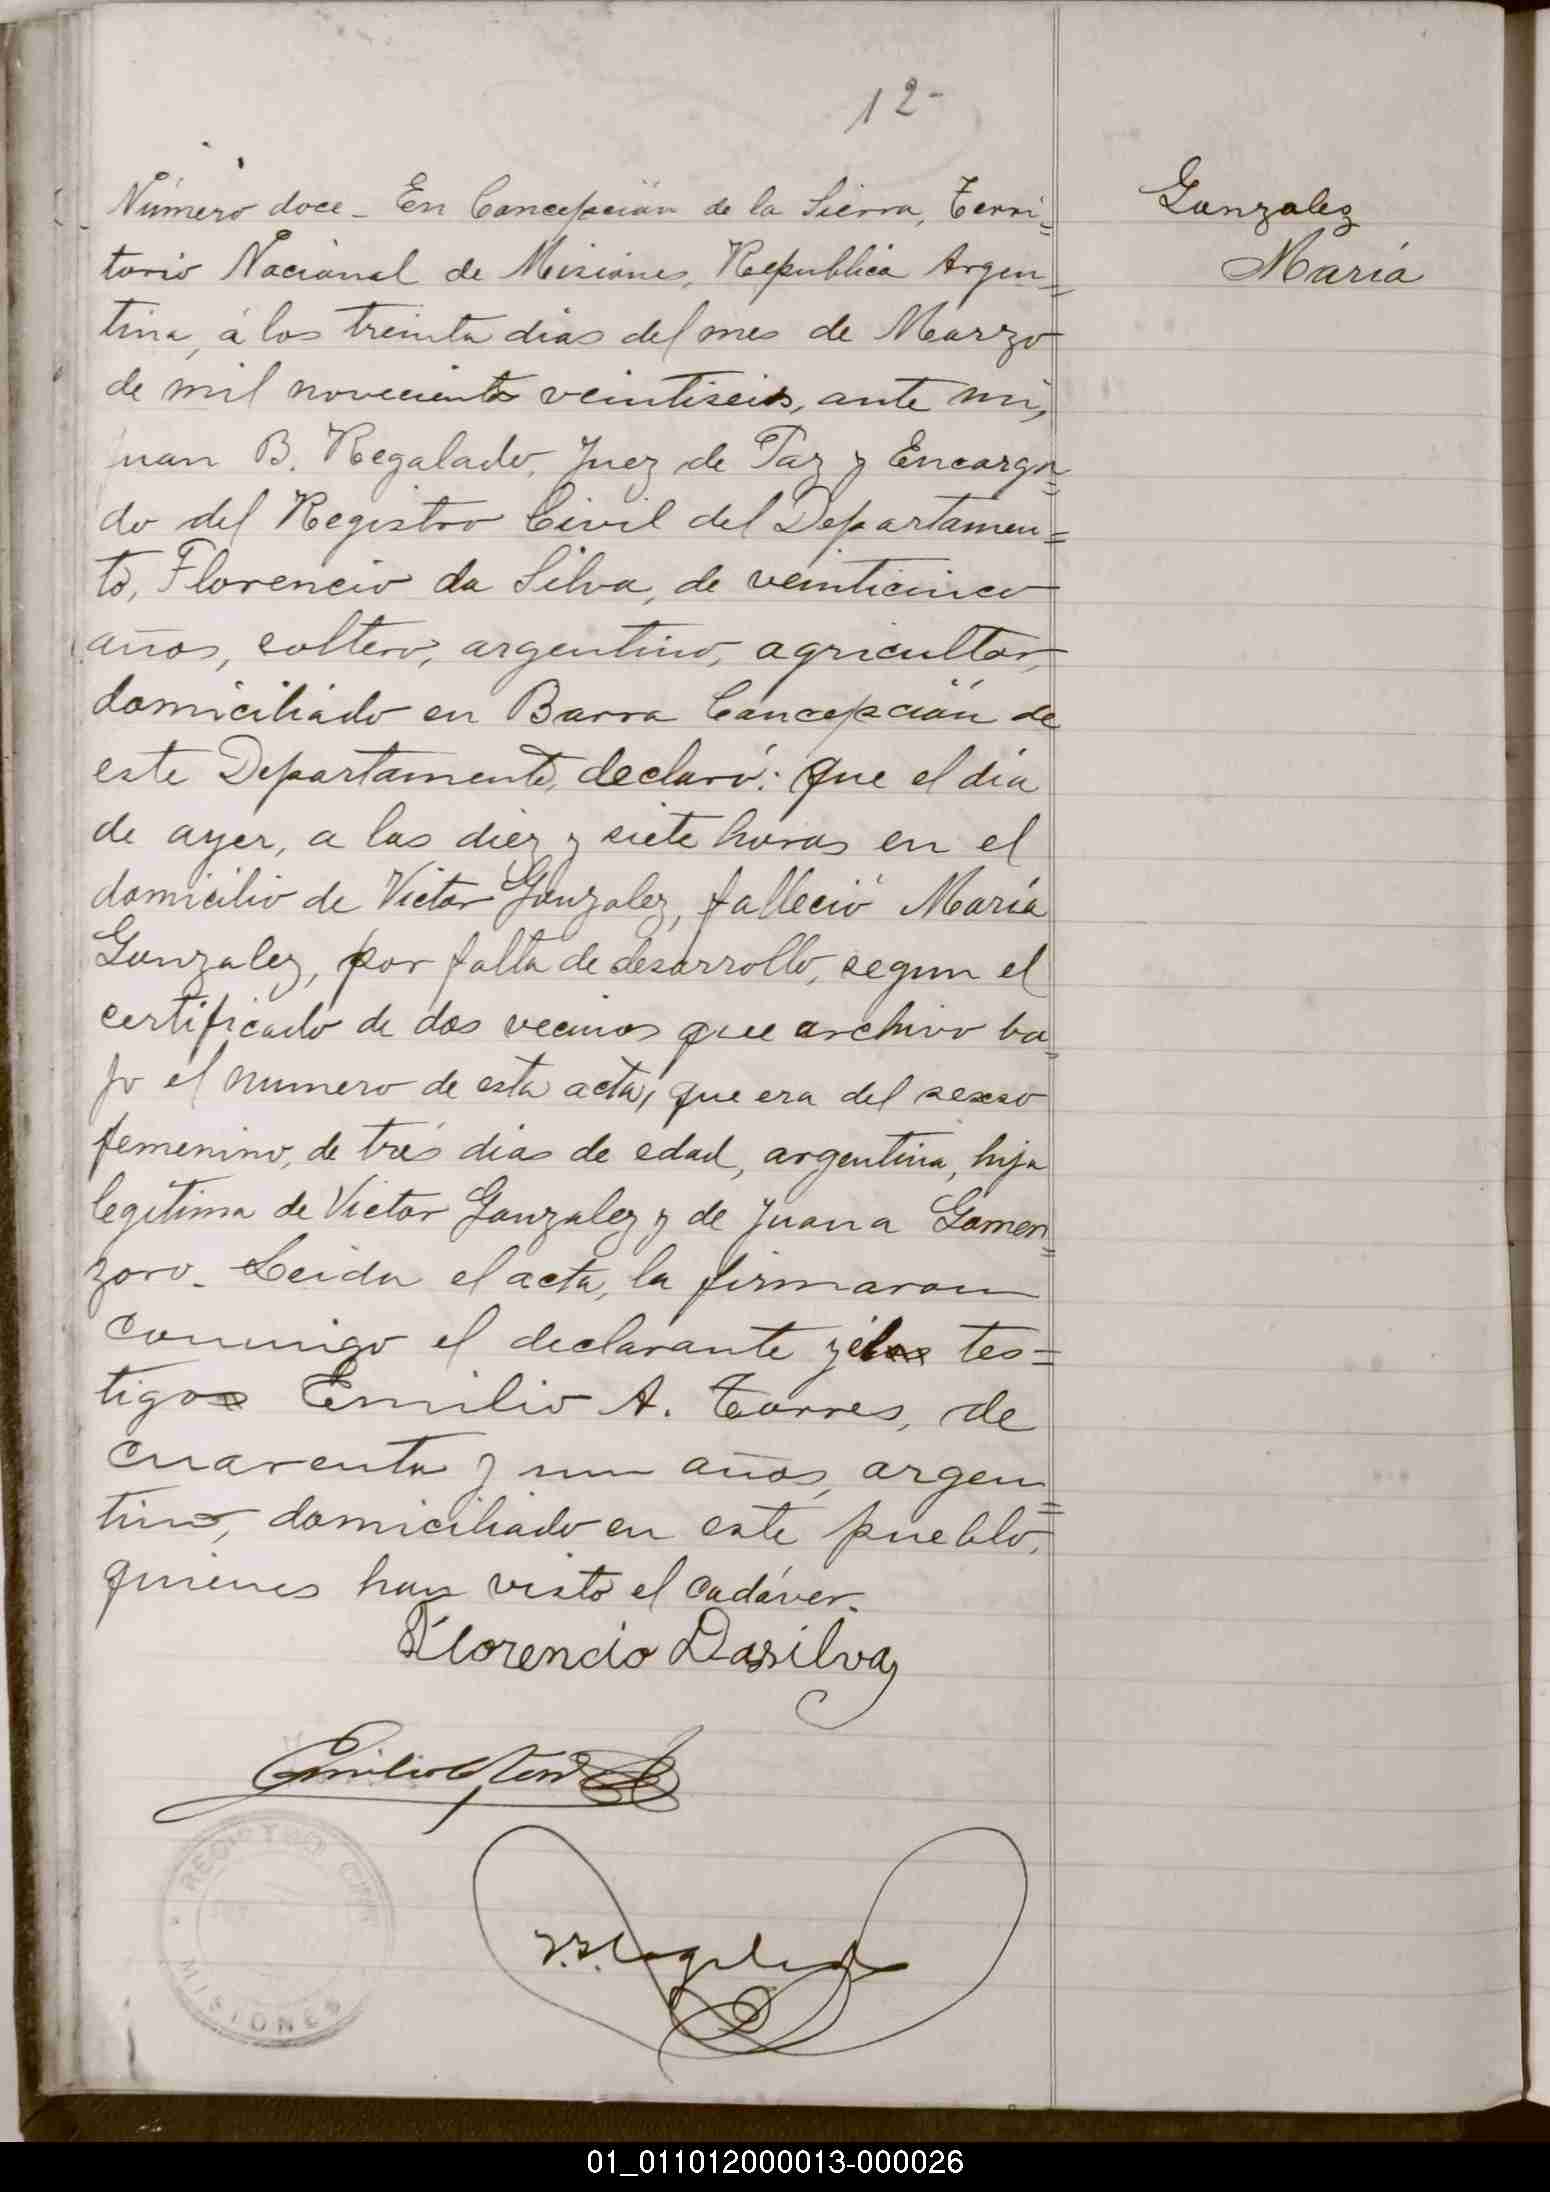 12-
Número doce_ En Concepción de la Sierra, Terri=
torio Nacional de Misiones, Republica Argen=
tina, á los treinta dias del mes de Marzo
de mil novecientos veintiseis, ante mi,
Juan B. Regalado, Juez de Paz y Encarga=
do del Registro Civil del Departamen=
to, Florencio da Silva, de veinticinco
años, soltero, argentino, agricultor,
domiciliado en Barra Concepción de
este Departamento, declaró: que el día
de ayer, a las diez y siete horas en el
domicilio de Victor Gonzalez, falleció María
Gonzalez, por falta de desarrollo, segun el
certificado de dos vecinos que archivo ba=
jo el numero de esta acta, que era del sexso
femenino, de trés dias de edad, argentina, hija
legítima de Victor Gonzalez y de Juana Gomen=
zoro_ Leida el acta, la firmaron
conmigo el declarante y el tes=
tigo Emilio A. Torres, de
cuarenta y un años, argen=
tino, domiciliado en este pueblo,
quienes han visto el cadáver.
Florencio Dasilva
Emilio A Torres
J. B. Regalado
REGISTRO CIVIL
MISIONES
Gonzalez
María
01_011012000013-000026